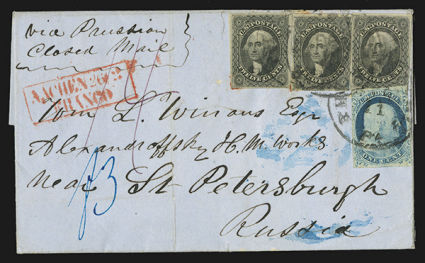 via Prussian
Closed Mail
AACHEN 26 2
FRANCO
U.S. POSTAGE
TWELVE CENTS
U.S. POSTAGE
TWELVE CENTS
U.S. POSTAGE
TWELVE CENTS
ONE CENT
Wm L. Winans Esqr
Alexandroffsky H. M. Works
Near St Petersburgh
Russia